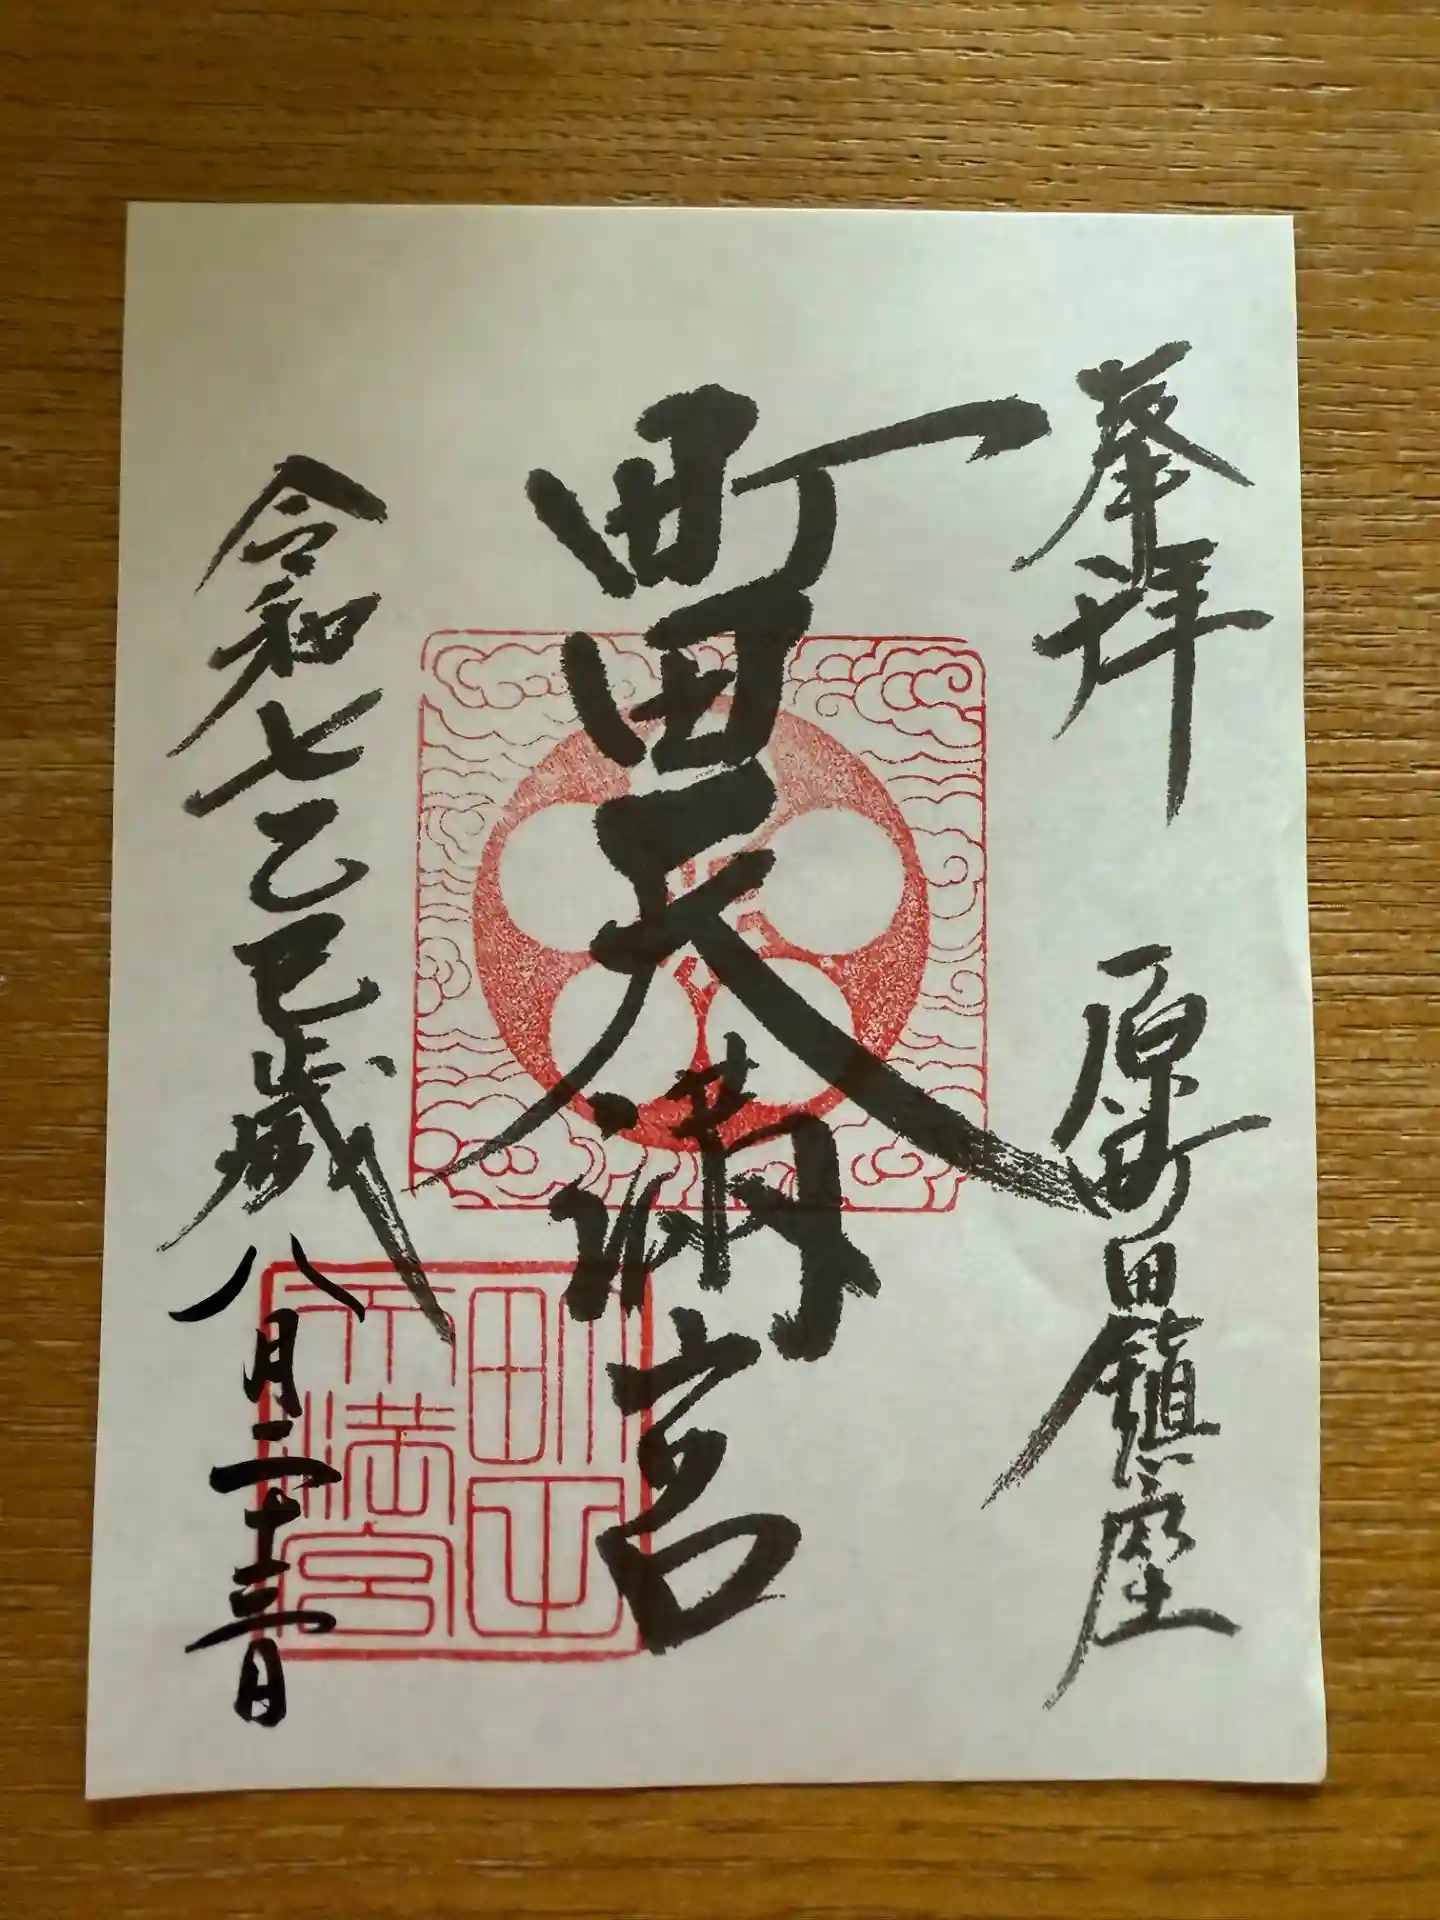 奉拝 原町田鎮座
町田天満宮
令和七乙巳歳八月二十三日
町田
天満宮